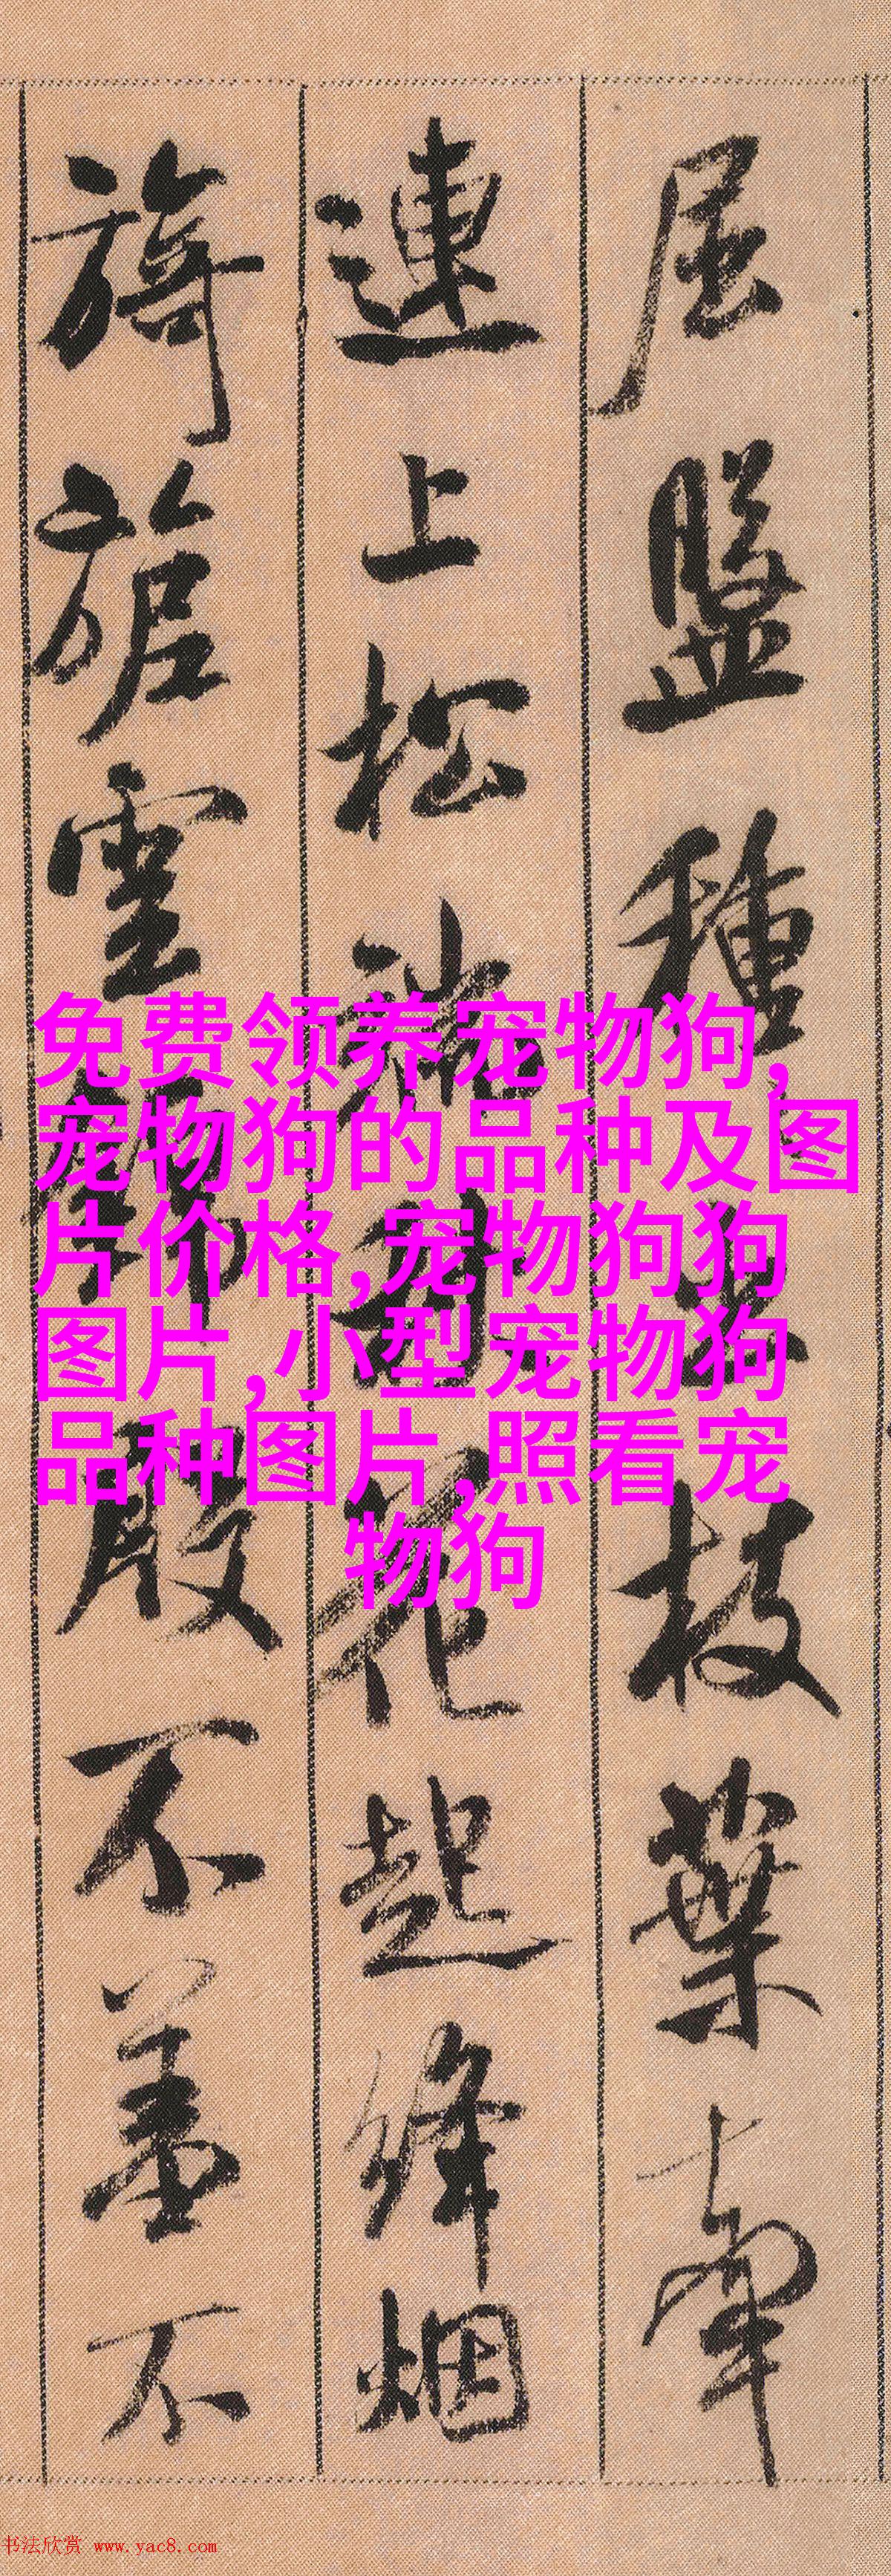 屈盤種々出枝葉牽
連上松端秋花起絳烟
旖旎雲錦殷不羞不
免费领养宠物狗,
宠物狗的品种及图
片价格,宠物狗狗
图片,小型宠物狗
品种图片,照看宠
物狗
书法欣赏 www.yac8.com